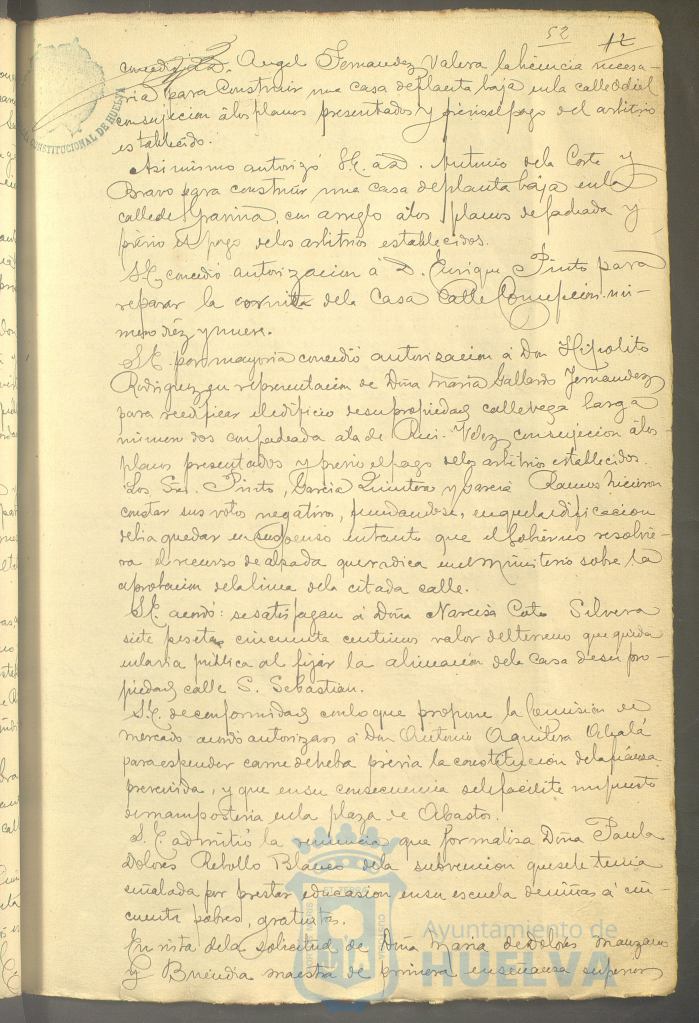 52 12
concedió a D. Angel Fernandez Valera la licencia necesa-
ria para construir una casa de planta baja en la calle Odiel
con sujecion á los planos presentados y prévio el pago del arbitrio
establecido.
Asi mismo autorizó S.E. á D. Antonio de la Corte y
Bravo para construir una casa de planta baja en la
calle de Gravina, con arreglo á los planos de fachada y
prévio el pago de los arbitrios establecidos.
S.E. concedió autorizacion á D. Enrique Pinto para
reparar la cornisa de la Casa Calle Concepcion nú-
mero diez y nueve.
S.E. por mayoria concedió autorizacion á Don Hipolito
Rodriguez en representacion de Doña Maria Gallardo Fernandez
para reedificar el edificio de su propiedad calle Vega Larga
número dos con fachada á la de Rui-Velez con sujecion á los
planos presentados y previo el pago de los arbitrios establecidos.
Los Sres. Pinto, Garcia Quintero y Garcia Ramos hicieron
constar sus votos negativos, fundandose, en que la edificacion
debia quedar en suspenso en tanto que el Gobierno resolvie-
ra el recurso de alzada que radica en el Ministerio sobre la
aprobacion de la linea de la citada calle.
S.E. acordó: se satisfagan á Doña Narcisa Cuto Silvera
siete pesetas cincuenta centimos valor del terreno que queda
en la via pública al fijar la alineacion de la Casa de su pro-
piedad calle S. Sebastian.
S.E. de conformidad con lo que propone la Comision de
mercado acordó autorizar á Don Antonio Aguilera Alcalá
para espender carne de hebra prévia la constitucion de la fianza
prevenida, y que en su consecuencia se le facilite un puesto
de mamposteria en la plaza de Abastos.
S.E. admitió la renuncia que formaliza Doña Paula
Dolores Rebollo Blanco de la subvencion que se le tenia
señalada por prestar educasion en su escuela de niñas á cin-
cuenta pobres, gratuitas.
En vista de la solicitud de Dña Maria de Dolores Manzano
y Buendia maestra de primera enseñanza superior
CONSTITUCIONAL DE HUELVA
Ayuntamiento de
HUELVA